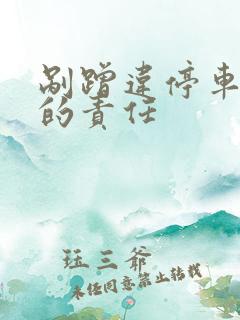 剐蹭违停車
的責任
珏三爷
未经同意禁止转载